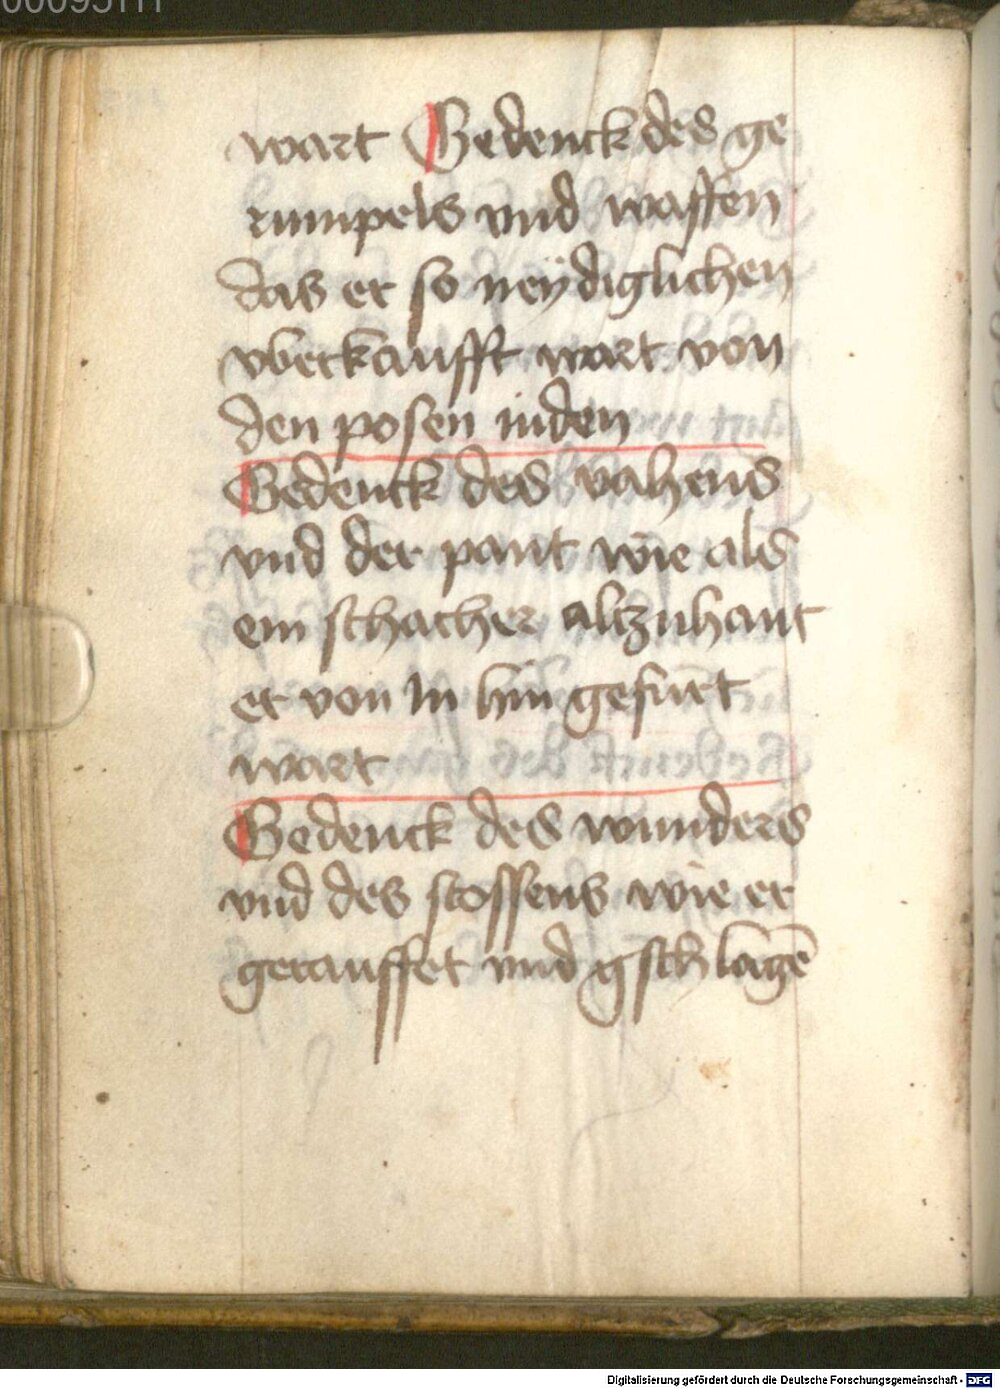 wart Gedenck des ge
rumpels vnd waffen
das er so neydiglichen
vberkaufft wart von
den posen iuden
Gedenck des vahens
vnd der pant wie als
ein schacher altzuhant
er von In hin gefurt
wart
Gedenck des wunders
vnd des stossens wie er
gerauffet vnd gschlagē
Digitalisierung gefördert durch die Deutsche Forschungsgemeinschaft - DFG